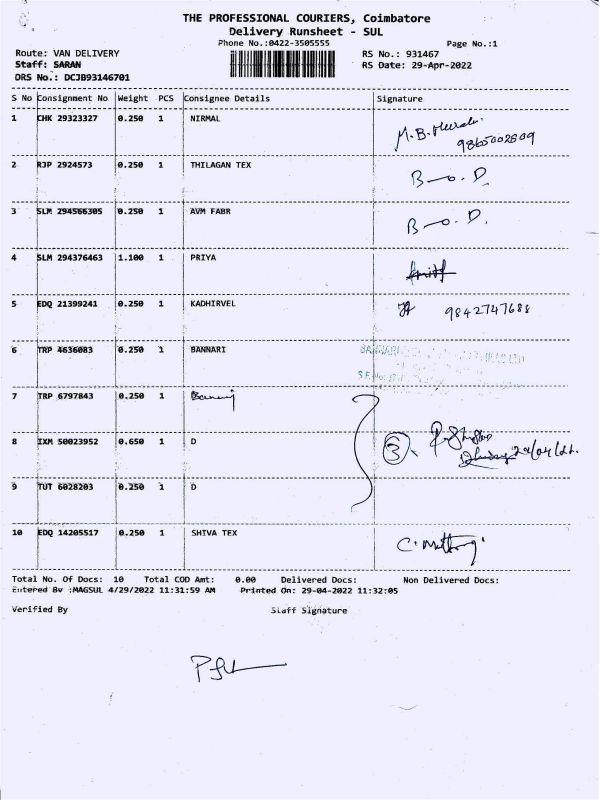 THE PROFESSIONAL COURIERS, Coimbatore
Delivery Runsheet - SUL
Phone No.:0422-3505555
Page No.:1
Route: VAN DELIVERY
RS No.: 931467
Staff: SARAN
RS Date: 29-Apr-2022
DRS No.: DCJB93146701
S No Consignment No Weight PCS Consignee Details Signature
1 CHK 29323327 0.250 1 NIRMAL M.B.
9865002809
2 RJP 2924573 0.250 1 THILAGAN TEX B-o.D.
3 SLM 294566305 0.250 1 AVM FABR B-o.D.
4 SLM 294376463 1.100 1 PRIYA
5 EDQ 21399241 0.250 1 KADHIRVEL 9842747688
6 TRP 4636083 0.250 1 BANNARI
7 TRP 6797843 0.250 1
8 IXM 50023952 0.650 1 D 3
9 TUT 6028203 0.250 1 D
10 EDQ 14205517 0.250 1 SHIVA TEX
Total No. Of Docs: 10 Total COD Amt: 0.00 Delivered Docs: Non Delivered Docs:
Entered By :MAGSUL 4/29/2022 11:31:59 AM Printed On: 29-04-2022 11:32:05
Verified By Staff Signature